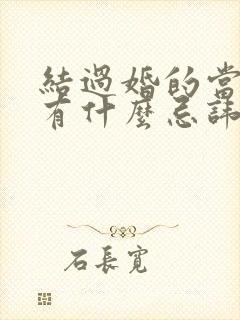 結過婚的當
有什麼忌諱
石長寬